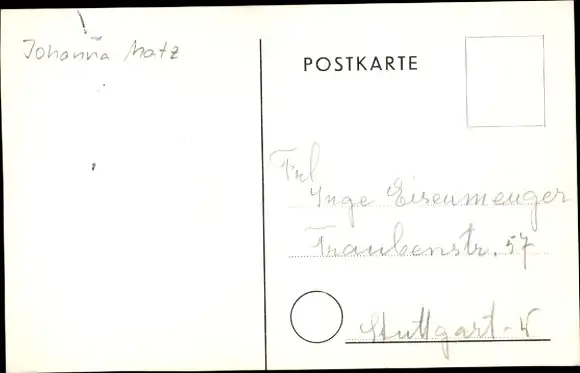 Johanna Matz
POSTKARTE
Frl
Inge Eisenmenger
Traubenstr. 57
Stuttgart-N